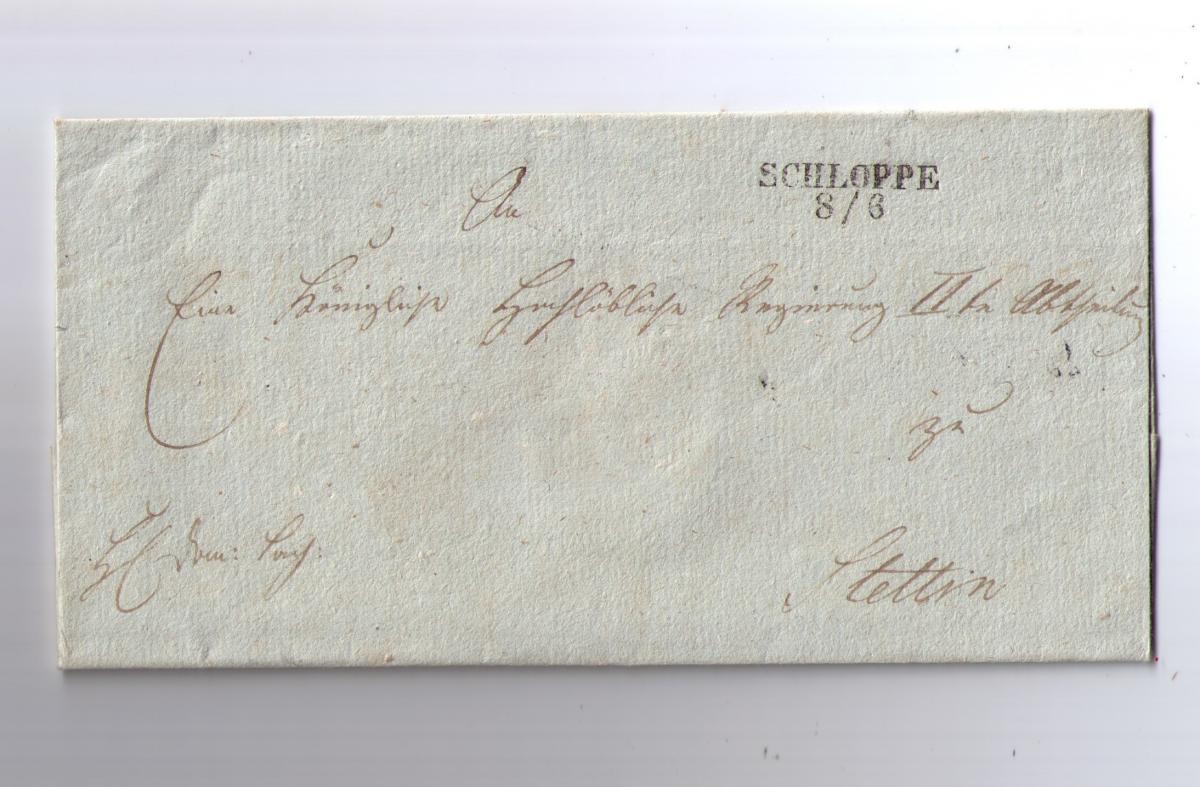 SCHLOPPE
8/6
An
Eine Königliche Hochlöbliche Regierung II te Abtheilung
zu
Stettin
Dom: Sach: